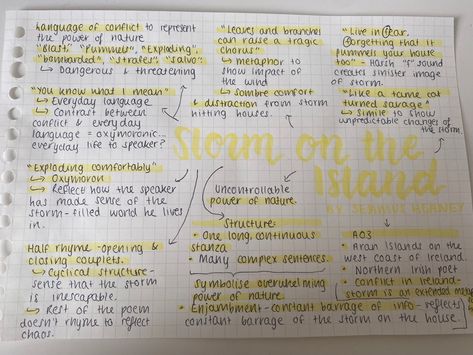 Language of conflict to represent
the power of nature
"Blast" "Pummels", "Exploding",
"bombarded", "strafes", "salvo":
↳ Dangerous & threatening
"Leaves and branches
can raise a tragic
chorus"
↳ metaphor to
show impact of
the wind
↳ Sombre comfort
& distraction from storm
hitting houses.
"Live in fear,
forgetting that it
pummels your house
too" - Harsh "f" sound
creates sinister image
of storm.
"Like a tame cat
turned savage"
↳ Simile to show
unpredictable changes of
the storm
"You know what I mean"
↳ Everyday language
↳ Contrast between
conflict & everyday
language = oxymoronic...
everyday life to speaker?
Storm on the
Island
BY SEAMUS HEANEY
"Exploding comfortably"
↳ Oxymoron
↳ Reflect how the speaker
has made sense of the
storm-filled world he
lives in.
Uncontrollable
power of nature.
Half rhyme - opening &
closing couplets.
↳ Cyclical structure -
sense that the storm
is inescapable.
↳ Rest of the poem
doesn't rhyme to reflect
chaos.
Structure:
• One long, continuous
stanza
• Many complex sentences.
Symbolise overwhelming
power of nature.
• Enjambment - constant barrage of info - reflects
constant barrage of the storm on the house.
AO3
• Aran Islands on the
west coast of Ireland.
• Northern Irish poet
• Conflict in Ireland -
storm is an extended metaphor